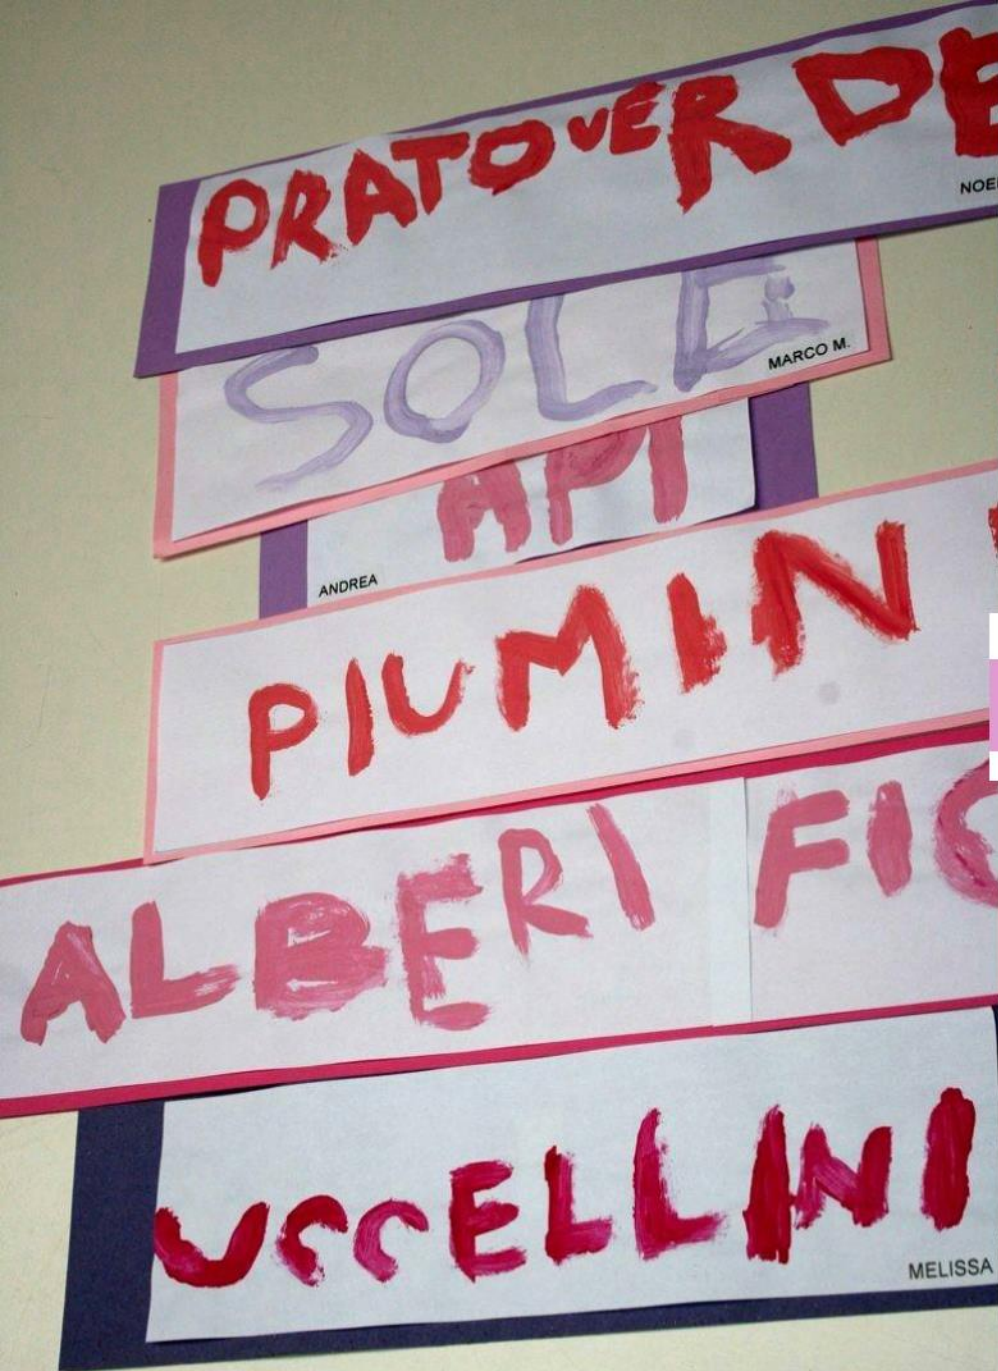 PRATO VERDE
NOE
SOLE
MARCO M.
API
ANDREA
PIUMIN
ALBERI FIO
UCCELLINI
MELISSA